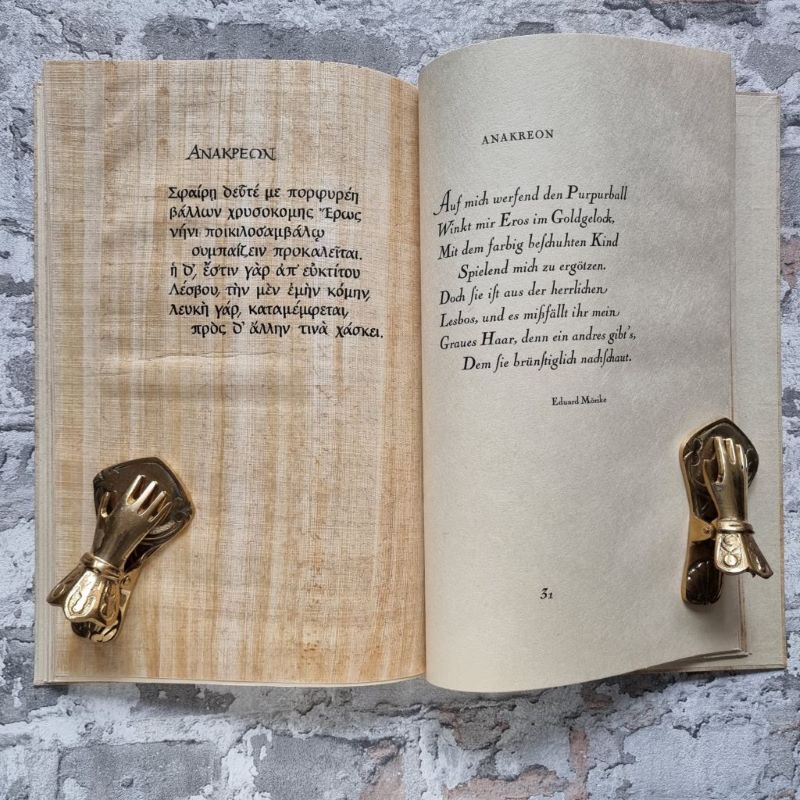 ΑΝΑΚΡΕΩΝ
Σφαίρῃ δεῦτέ με πορφυρέῃ
βάλλων χρυσοκομης Ἔρως
νήνι ποικιλοσαμβάλῳ
συμπαίζειν προκαλεῖται.
ἡ δ', ἔστιν γὰρ ἀπ' εὐκτίτου
Λέσβου, τὴν μὲν ἐμὴν κόμην,
λευκὴ γάρ, καταμέμφεται,
πρὸς δ' ἄλλην τινὰ χάσκει.
ANAKREON
Auf mich werfend den Purpurball
Winkt mir Eros im Goldgelock,
Mit dem farbig beſchuhten Kind
Spielend mich zu ergötzen.
Doch ſie iſt aus der herrlichen
Lesbos, und es mißfällt ihr mein
Graues Haar, denn ein andres gibt's,
Dem ſie brünſtiglich nachſchaut.
Eduard Mörike
31